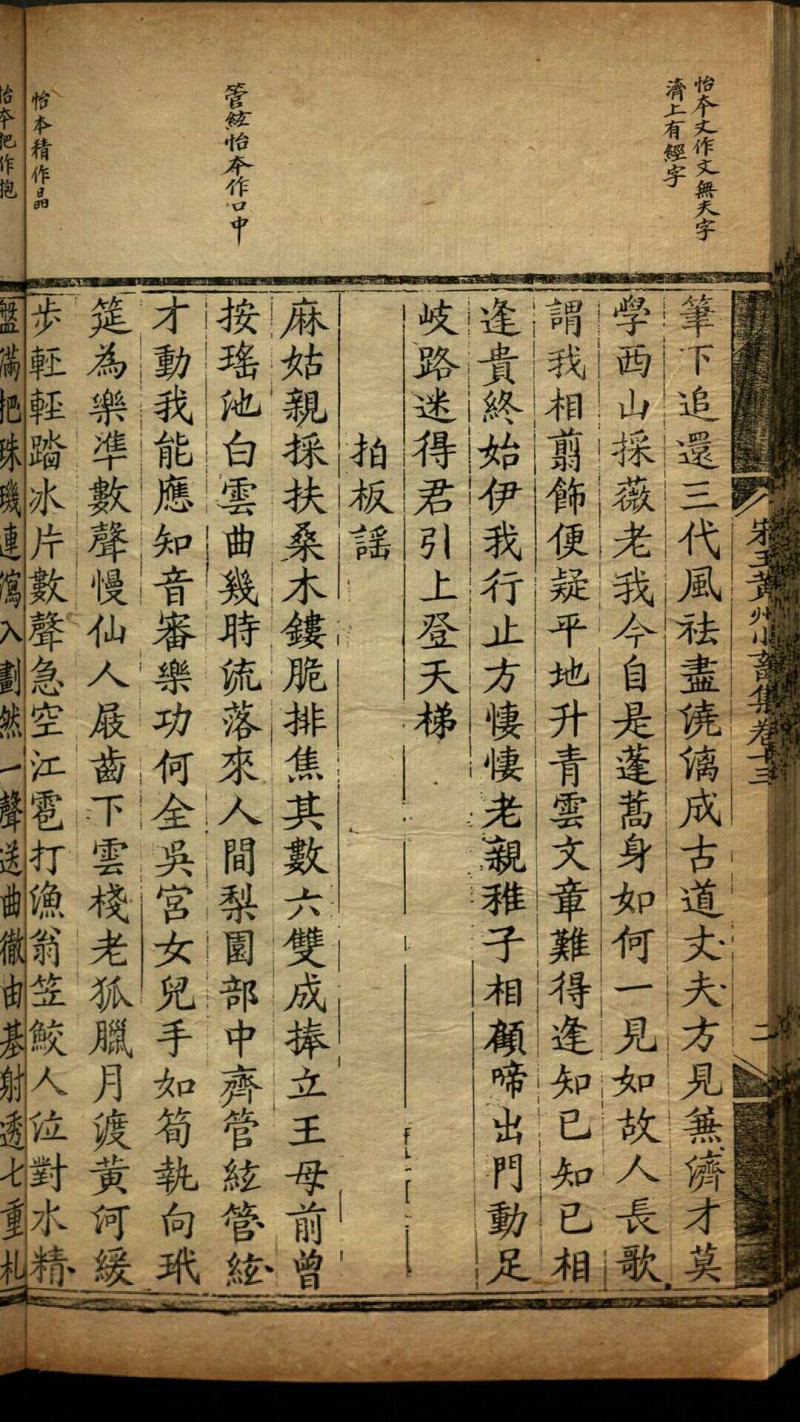 怡本文作文無天字
濟上有經字
管絃怡本作口中
怡本精作晶
怡本把作抱
宋王黃州小畜集卷十三
二
筆下追還三代風祛盡澆漓成古道丈夫方見兼濟才莫
學西山採薇老我今自是蓬蒿身如何一見如故人長歌
謂我相翦飾便疑平地升青雲文章難得逢知已知已相
逢貴終始伊我行止方悽悽老親稚子相顧啼出門動足
岐路迷得君引上登天梯
拍板謠
麻姑親採扶桑木鏤脆排焦其數六雙成捧立王母前曾
按瑤池白雲曲幾時流落來人間梨園部中齊管絃管絃
才動我能應知音審樂功何全吳宮女兒手如筍執向玳
筵為樂準數聲慢仙人屐齒下雲棧老狐臘月渡黃河緩
步輕輕踏冰片數聲急空江雹打漁翁笠鮫人泣對水精
盤滿把珠璣連瀉入劃然一聲送曲徹由基射透七重札